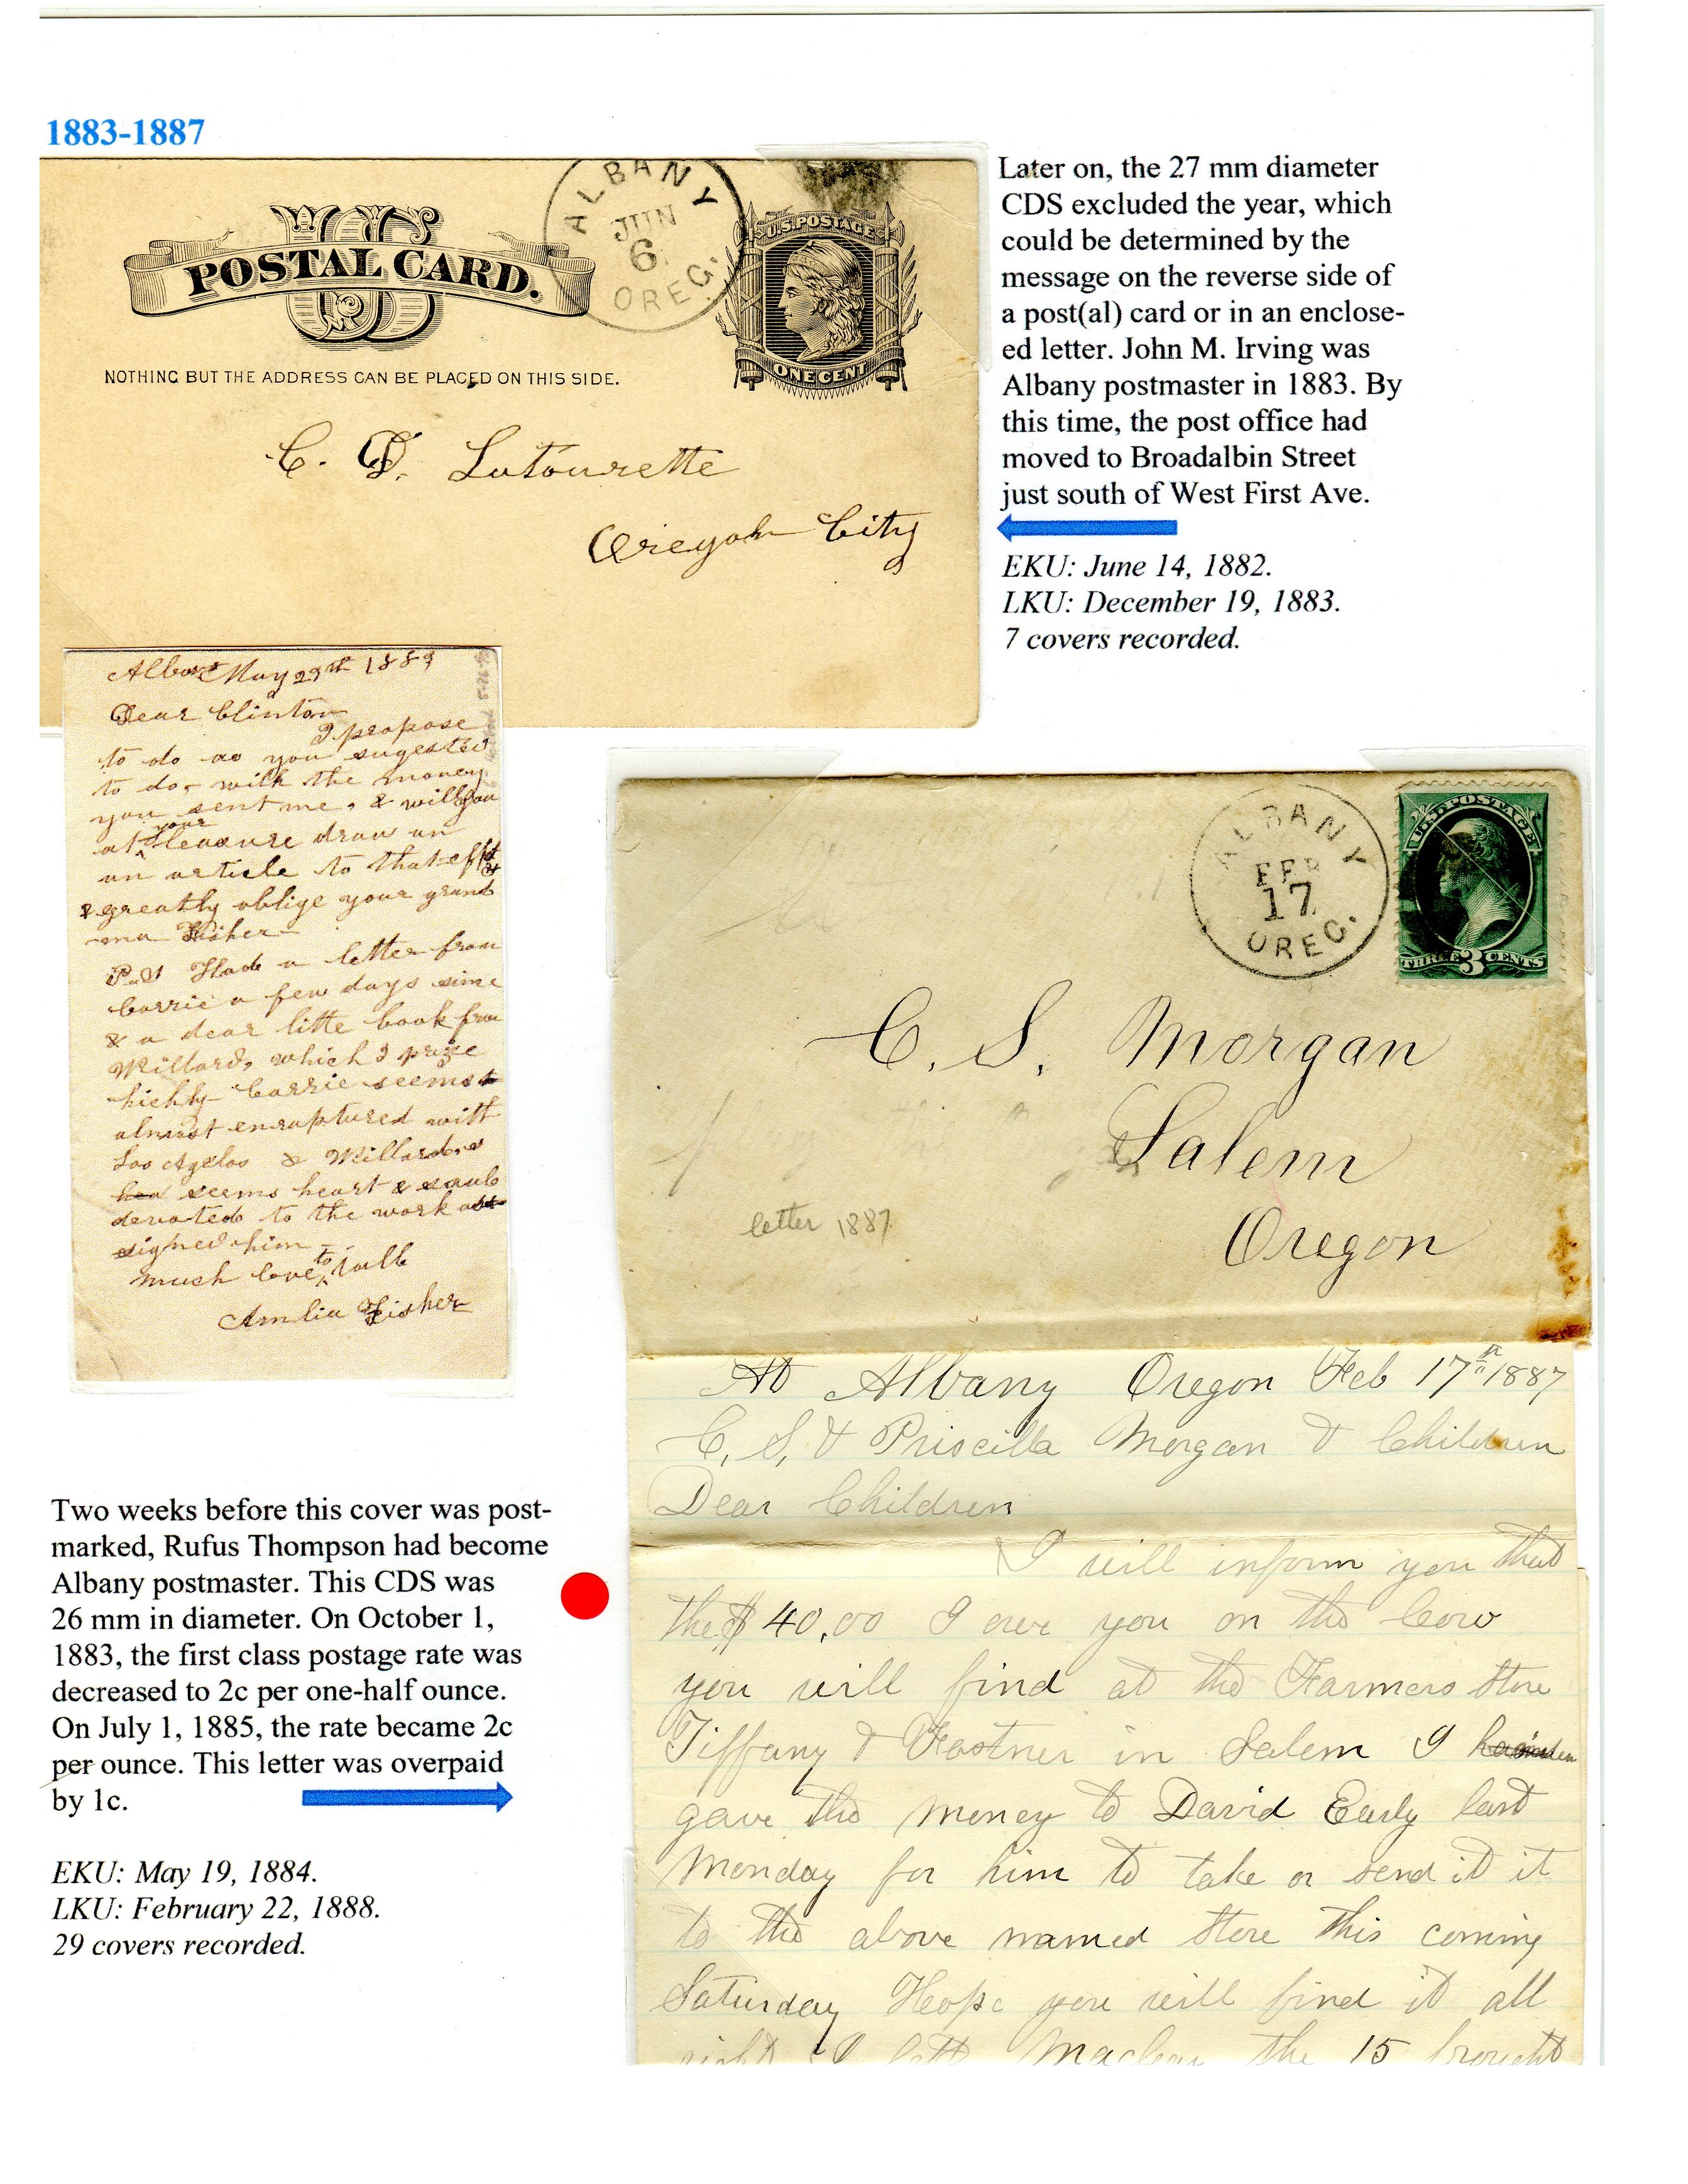 1883-1887
ALBANY
JUN
6
OREG.
US
POSTAL CARD.
U.S. POSTAGE
ONE CENT
NOTHING BUT THE ADDRESS CAN BE PLACED ON THIS SIDE.
C. D. Latourette
Oregon City
Later on, the 27 mm diameter
CDS excluded the year, which
could be determined by the
message on the reverse side of
a post(al) card or in an enclose-
ed letter. John M. Irving was
Albany postmaster in 1883. By
this time, the post office had
moved to Broadalbin Street
just south of West First Ave.
EKU: June 14, 1882.
LKU: December 19, 1883.
7 covers recorded.
May 29th 1883
Dear Clinton
I propose
to do as you sugested
to do, with the money
you sent me, & will you
at your pleasure draw un
an article to that effct
& greatly oblige your grand
ma Fisher
P.S Had a letter from
Carrie a few days sinc
& a dear litte book from
Willard, which I prize
highly Carrie seems
almost enraptured with
Los Agelos & Willard
seems heart & soul
devoted to the work as
signed him
much love to all
Amelia Fisher
ALBANY
FEB
17
OREG.
U.S. POSTAGE
THREE 3 CENTS
C. S. Morgan
Salem
Oregon
letter 1887
At Albany Oregon Feb 17th 1887
C, S, & Priscilla Morgan & Children
Dear Children
I will inform you that
the $40,00 I owe you on the Cow
you will find at the Farmers Store
Tiffany & Fostner in Salem I
gave the money to David Early last
Monday for him to take or send it it
to the above named Store this coming
Saturday Hope you will find it all
right I left the 15 brought
Two weeks before this cover was post-
marked, Rufus Thompson had become
Albany postmaster. This CDS was
26 mm in diameter. On October 1,
1883, the first class postage rate was
decreased to 2c per one-half ounce.
On July 1, 1885, the rate became 2c
per ounce. This letter was overpaid
by 1c.
EKU: May 19, 1884.
LKU: February 22, 1888.
29 covers recorded.